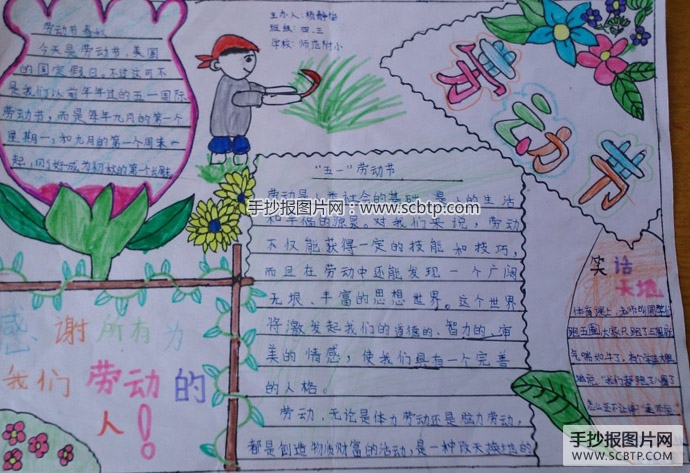 主办人：杨静怡
班级：四.三
学校：师范附小
劳动节
劳动节
今天是劳动节，美国
的国定假日，不过这可不
是我们以前年年过的五一国际
劳动节，而是每年九月的第一个
星期一，和九月的第一个周末一
起，刚好成为初秋的第一个长
"五一"劳动节
劳动是人类社会的基础，是人的生活
和幸福的源泉。对我们来说，劳动
不仅能获得一定的技能和技巧，
而且在劳动中还能发现一个广阔
无垠、丰富的思想世界。这个世界
将激发起我们的道德的、智力的、审
美的情感，使我们具有一个完善
的人格。
劳动，无论是体力劳动还是脑力劳动，
都是创造物质财富的活动，是一种改天换地的
手抄报图片网：www.scbtp.com
感谢所有为
我们劳动的
人！
笑话
天地
体育课上，老师
手抄报图片网
WWW.SCBTP.COM